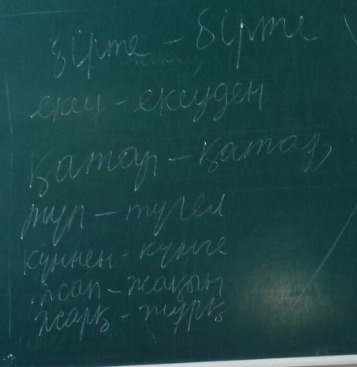 бірте – бірте
екеу – екеуден
қатар – қатар,
түп – түгел
күннен – күнге
жап – жақын
жарқ – жұрқ